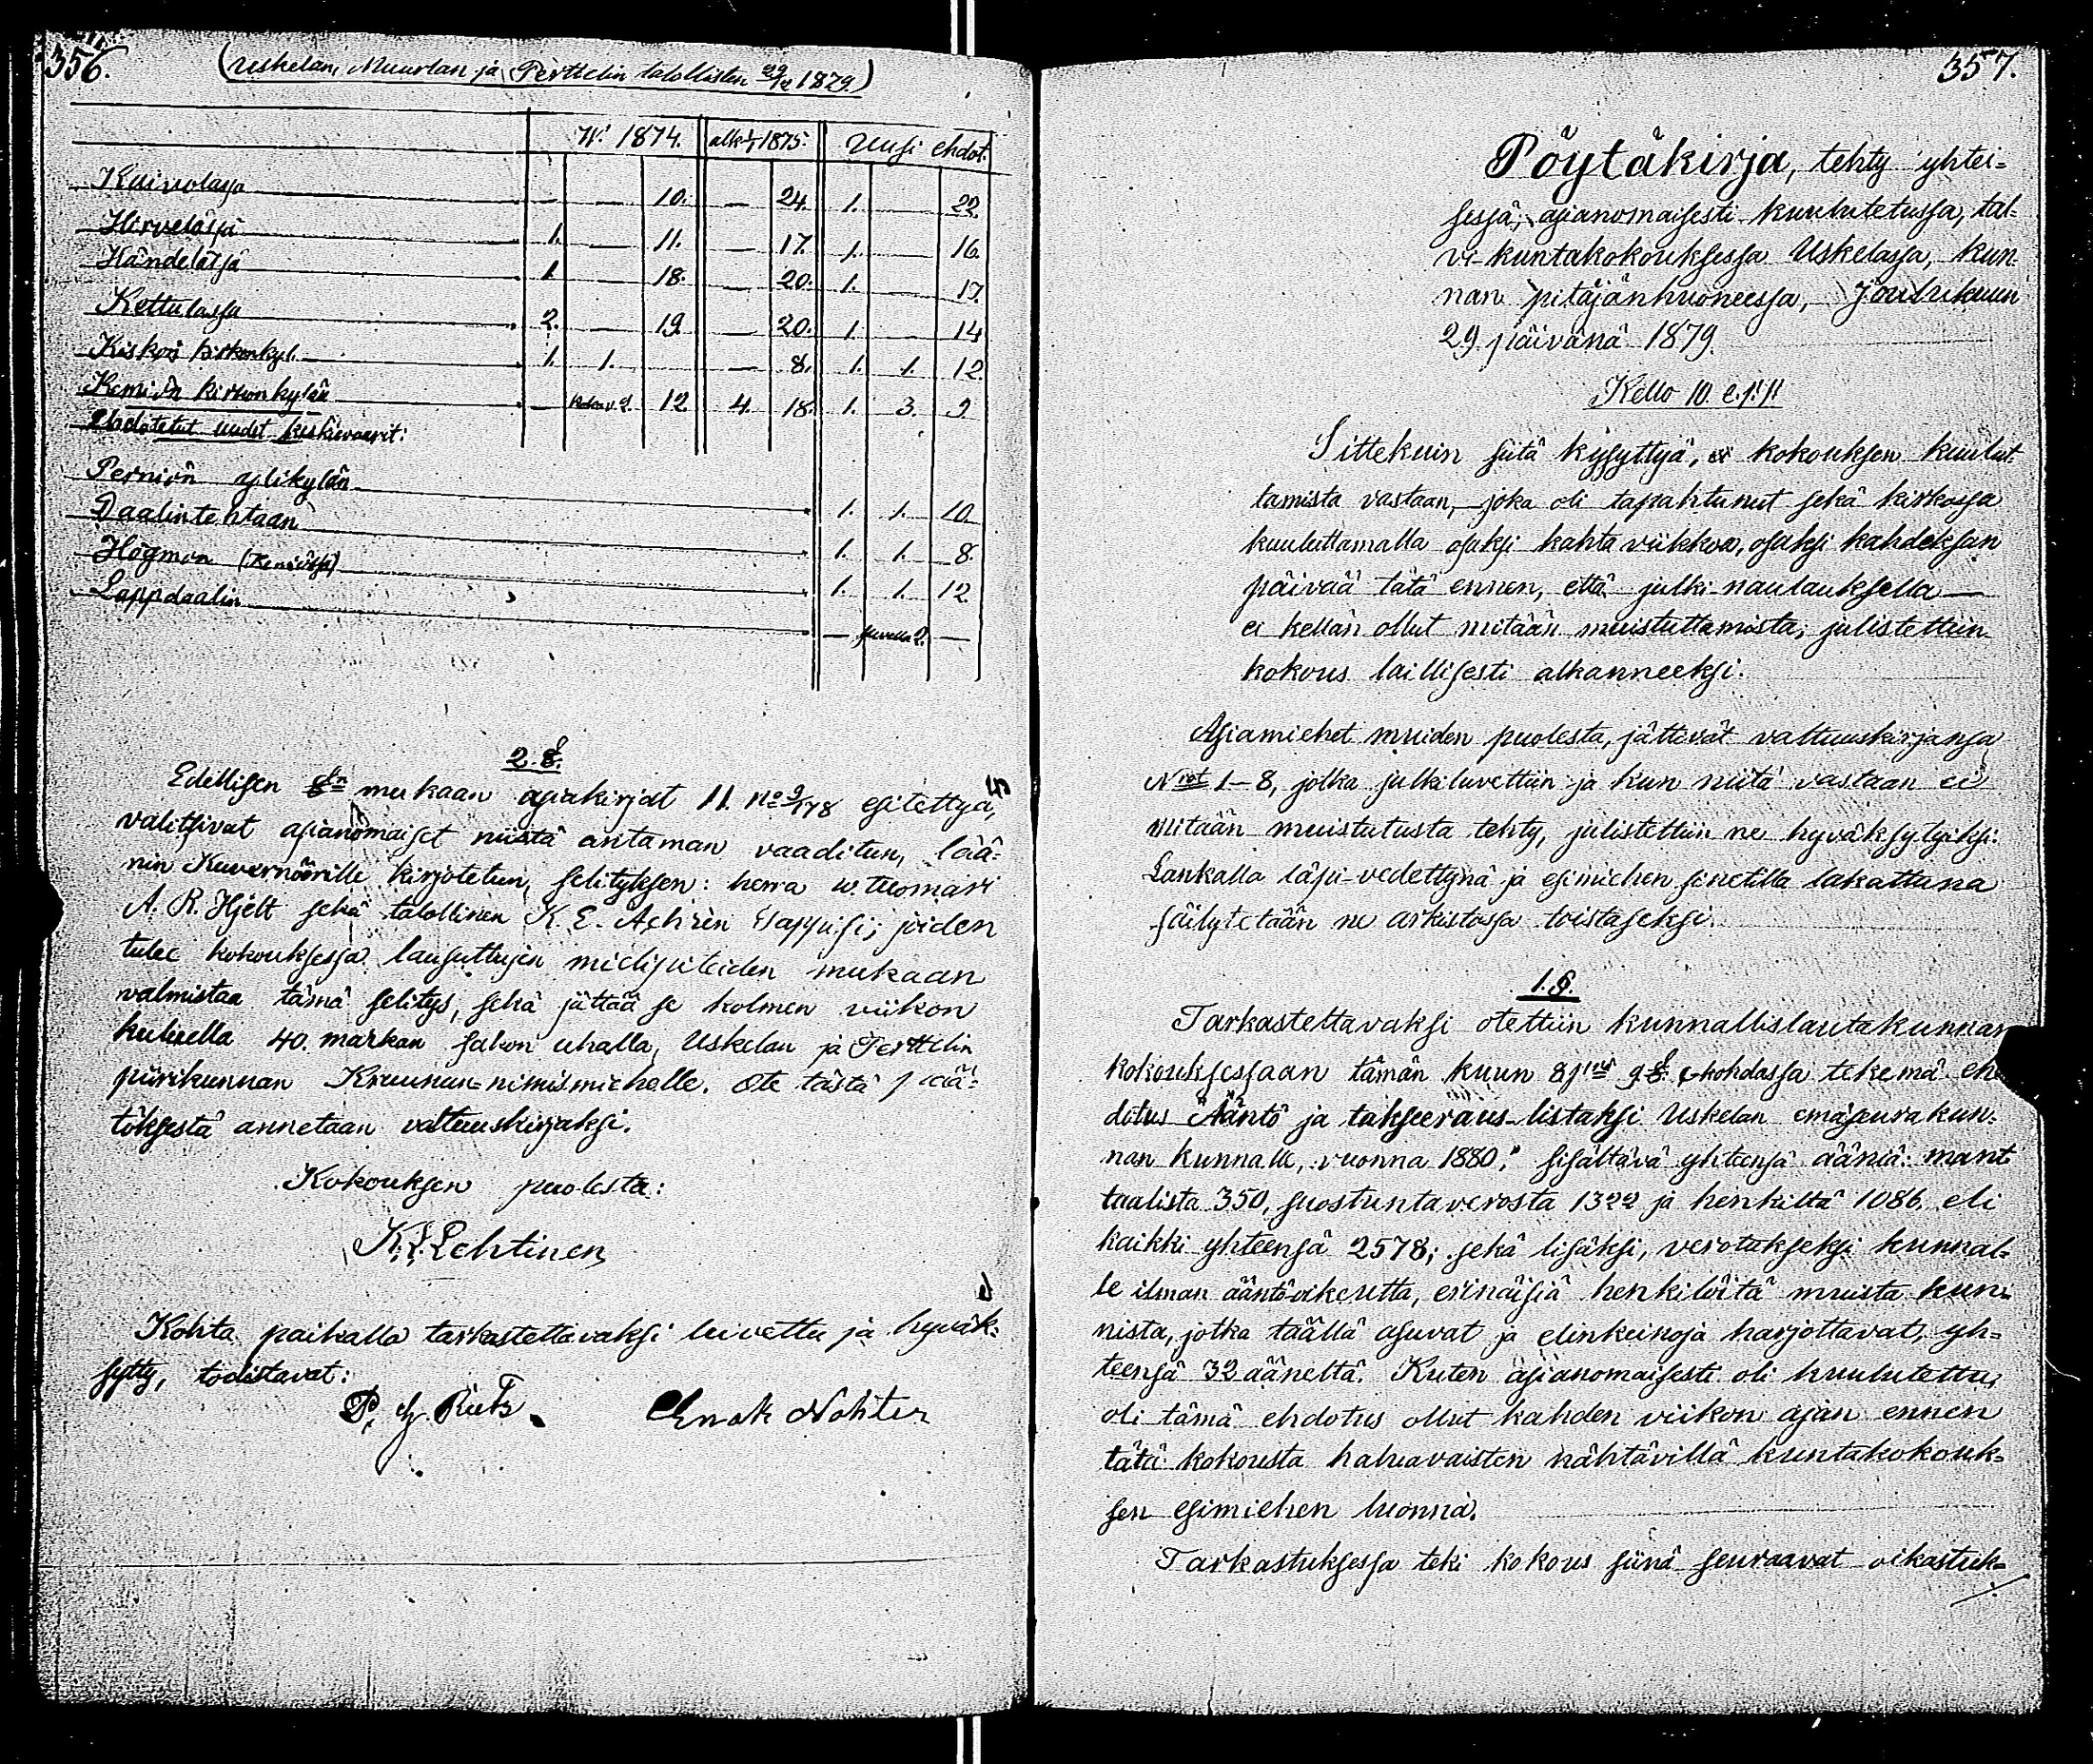 356.
(Uskelan, Muurlan ja Perttelin talollisten 29/12 1879.)
W. 1874. alk. 1/1 1875. Uusi ehdot.
Kaivolassa — — 10. — 24. 1. — 22.
Hirvelässä 1. — 11. — 17. 1. — 16.
Händelässä 1. — 18. — 20. 1. — 17.
Kettulassa 2. — 19. — 20. 1. — 14
Kiskon kirkonkyl. 1. 1. — 8. 1. 1. 12.
Kemiön kirkonkylän — 12 4. 18. 1. 3. 9.
Ehdotetut uudet keskievaarit:
Perniön ylikylän 1. 1. 10.
Daalintehtaan 1. 1. 8.
Högmon (Kemiössä) 1. 1. 12.
Lappdaalin — —
2. §.
Edellisen §n mukaan asiakirjat 11. No 9/178 esitettyä,
valitsivat asianomaiset niistä antaman vaaditun, lää-
nin Kuvernöörille kirjotetun, selityksen: herra
A. R. Hjelt sekä talollinen K. E. joiden
tulee kokouksessa lausuttujen mielipiteiden mukaan
valmistaa tämä selitys, sekä jättää se kolmen viikon
kuluella 40. markan sakon uhalla, Uskelan ja Perttelin
piirikunnan Kruunun-nimismiehelle. Ote tästä pää-
töksestä annetaan valtuuskirjaksi.
Kokouksen puolesta:
K. J. Lehtinen
Kohta paikalla tarkastettavaksi luvettu ja hyväk-
sytty, todistavat:
Enok Nohter
357.
Pöytäkirja, tehty yhtei-
sessä, asianomaisesti kuulutetussa, tal-
vi-kuntakokouksessa Uskelassa, kun-
nan pitäjänhuoneessa, Joulukuun
29 päivänä 1879.
Kello 10. e.p.p.
Sittekuin siitä kysyttyä, kokouksen kuulut-
tamista vastaan, joka oli tapahtunut sekä kirkossa
kuuluttamalla osaksi kahta viikkoa, osaksi kahdeksan
päivää tätä ennen, että julki-naulauksella —
ei kellän ollut mitään muistuttamista; julistettiin
kokous laillisesti alkanneeksi.
Asiamiehet muiden puolesta, jättivät valtuuskirjansa
Nrot 1-8, jotka julkiluvettiin ja kun niitä vastaan ei
mitään muistutusta tehty, julistettiin ne hyväksytyiksi.
Lankalla läpi-vedettynä ja esimiehen sinetillä lakattuna
säilytetään ne arkistossa toistaseksi.
1. §.
Tarkastettavaksi otettiin kunnallislautakunnan
kokouksessaan tämän kuun 8 pnä 9 §. kohdassa tekemä eh-
dotus "Ääntö ja takseeraus-listaksi Uskelan emäseurakun-
nan kunnalle, vuonna 1880," sisältävä yhteensä ääniä: mant-
taalista 350, suostuntaverosta 1322 ja henkiltä 1086. eli
kaikki yhteensä 2578; sekä lisäksi, verotukseksi kunnal-
le ilman ääntöoikeutta, erinäisiä henkilöitä muista kun-
nista, jotka täällä asuvat ja elinkeinoja harjottavat, yh-
teensä 32 ääneltä. Kuten asianomaisesti oli kuulutettu,
oli tämä ehdotus ollut kahden viikon ajan ennen
tätä kokousta haluavaisten nähtävillä kuntakokouk-
sen esimiehen luonna.
Tarkastuksessa teki kokous siinä seuraavat oikastuk-